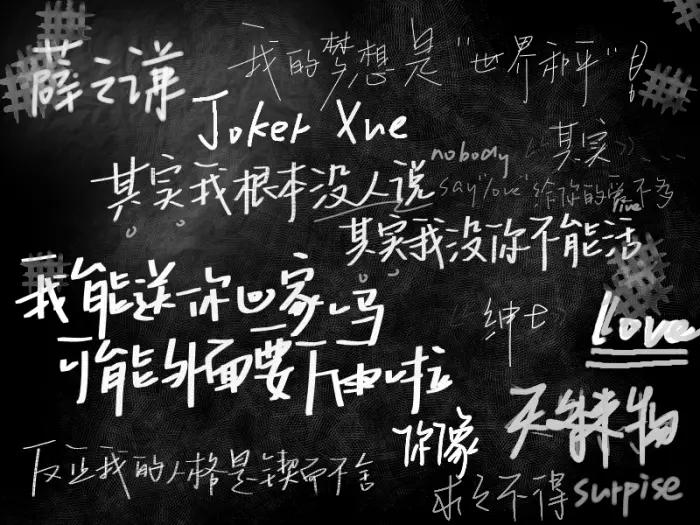 薛之谦
我的梦想是"世界和平"!
Joker Xue
nobody 《其实》...
其实我根本没人说
say"love" 给你的爱不多
live
其实我没你不能活
我能送你回家吗
《绅士》
love
可能外面要下雨啦
你像 天外来物
反正我的人格是锲而不舍
求之不得 surpise